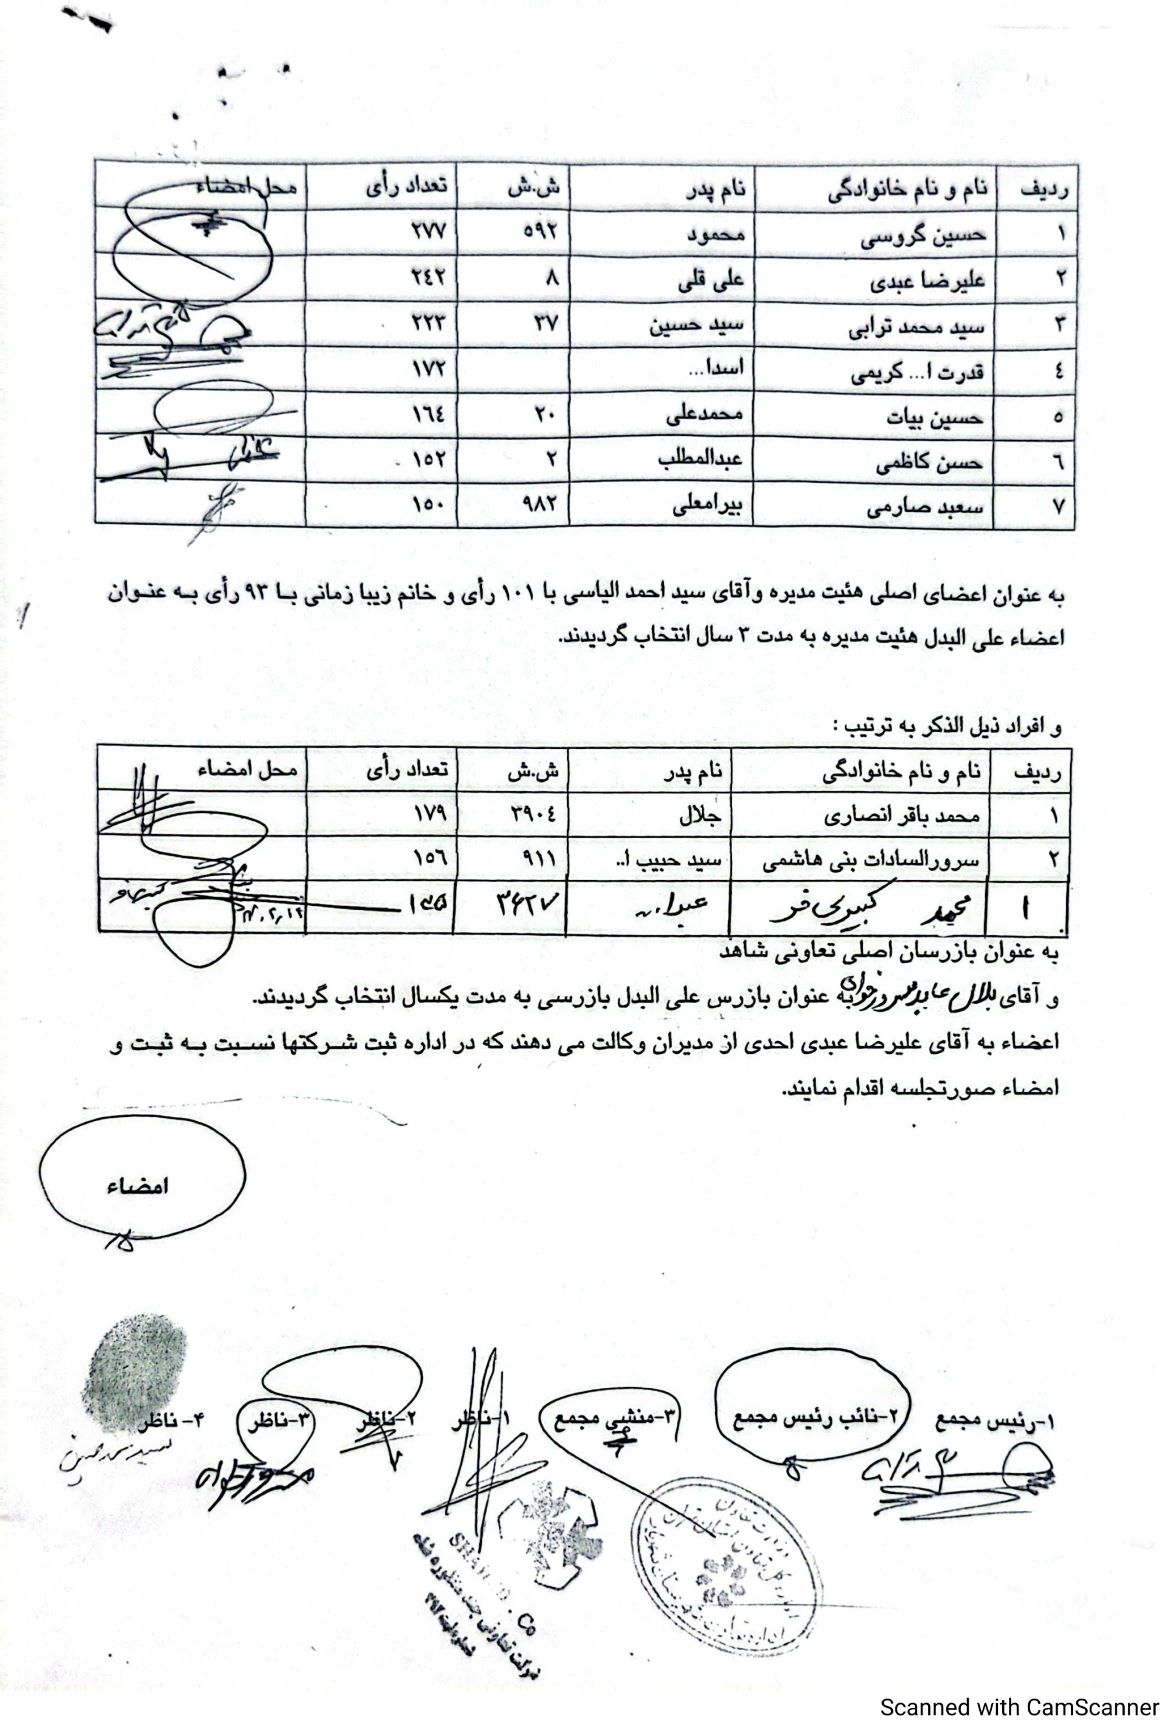 ردیف نام و نام خانوادگی نام پدر ش.ش تعداد رأی محل امضاء
۱ حسین گروسی محمود ۵۹۲ ۲۷۷
۲ علیرضا عبدی علی قلی ۸ ۲٤۲
۳ سید محمد ترابی سید حسین ۳۷ ۲۲۳
٤ قدرت ا... کریمی اسدا... ۱۷۲
۵ حسین بیات محمدعلی ۲۰ ۱٦٤
٦ حسن کاظمی عبدالمطلب ۲ ۱۵۲
۷ سعید صارمی بیرامعلی ۹۸۲ ۱۵۰
به عنوان اعضای اصلی هئیت مدیره وآقای سید احمد الیاسی با ۱۰۱ رأی و خانم زیبا زمانی با ۹۳ رأی به عنوان
اعضاء علی البدل هئیت مدیره به مدت ۳ سال انتخاب گردیدند.
و افراد ذیل الذکر به ترتیب :
ردیف نام و نام خانوادگی نام پدر ش.ش تعداد رأی محل امضاء
۱ محمد باقر انصاری جلال ۳۹۰٤ ۱۷۹
۲ سرورالسادات بنی هاشمی سید حبیب ا.. ۹۱۱ ۱۵٦
۱ محمد کبیری فر عبدا.. ۳۶۲۷ ۱۳۵
به عنوان بازرسان اصلی تعاونی شاهد
و آقای بلال عابد به عنوان بازرس علی البدل بازرسی به مدت یکسال انتخاب گردیدند.
اعضاء به آقای علیرضا عبدی احدی از مدیران وکالت می دهند که در اداره ثبت شرکتها نسبت به ثبت و
امضاء صورتجلسه اقدام نمایند.
امضاء
۱-رئیس مجمع ۲-نائب رئیس مجمع ۳-منشی مجمع ۱-ناظر ۲-ناظر ۳-ناظر ۴-ناظر
Co
شرکت تعاونی چند منظوره شاهد
Scanned with CamScanner